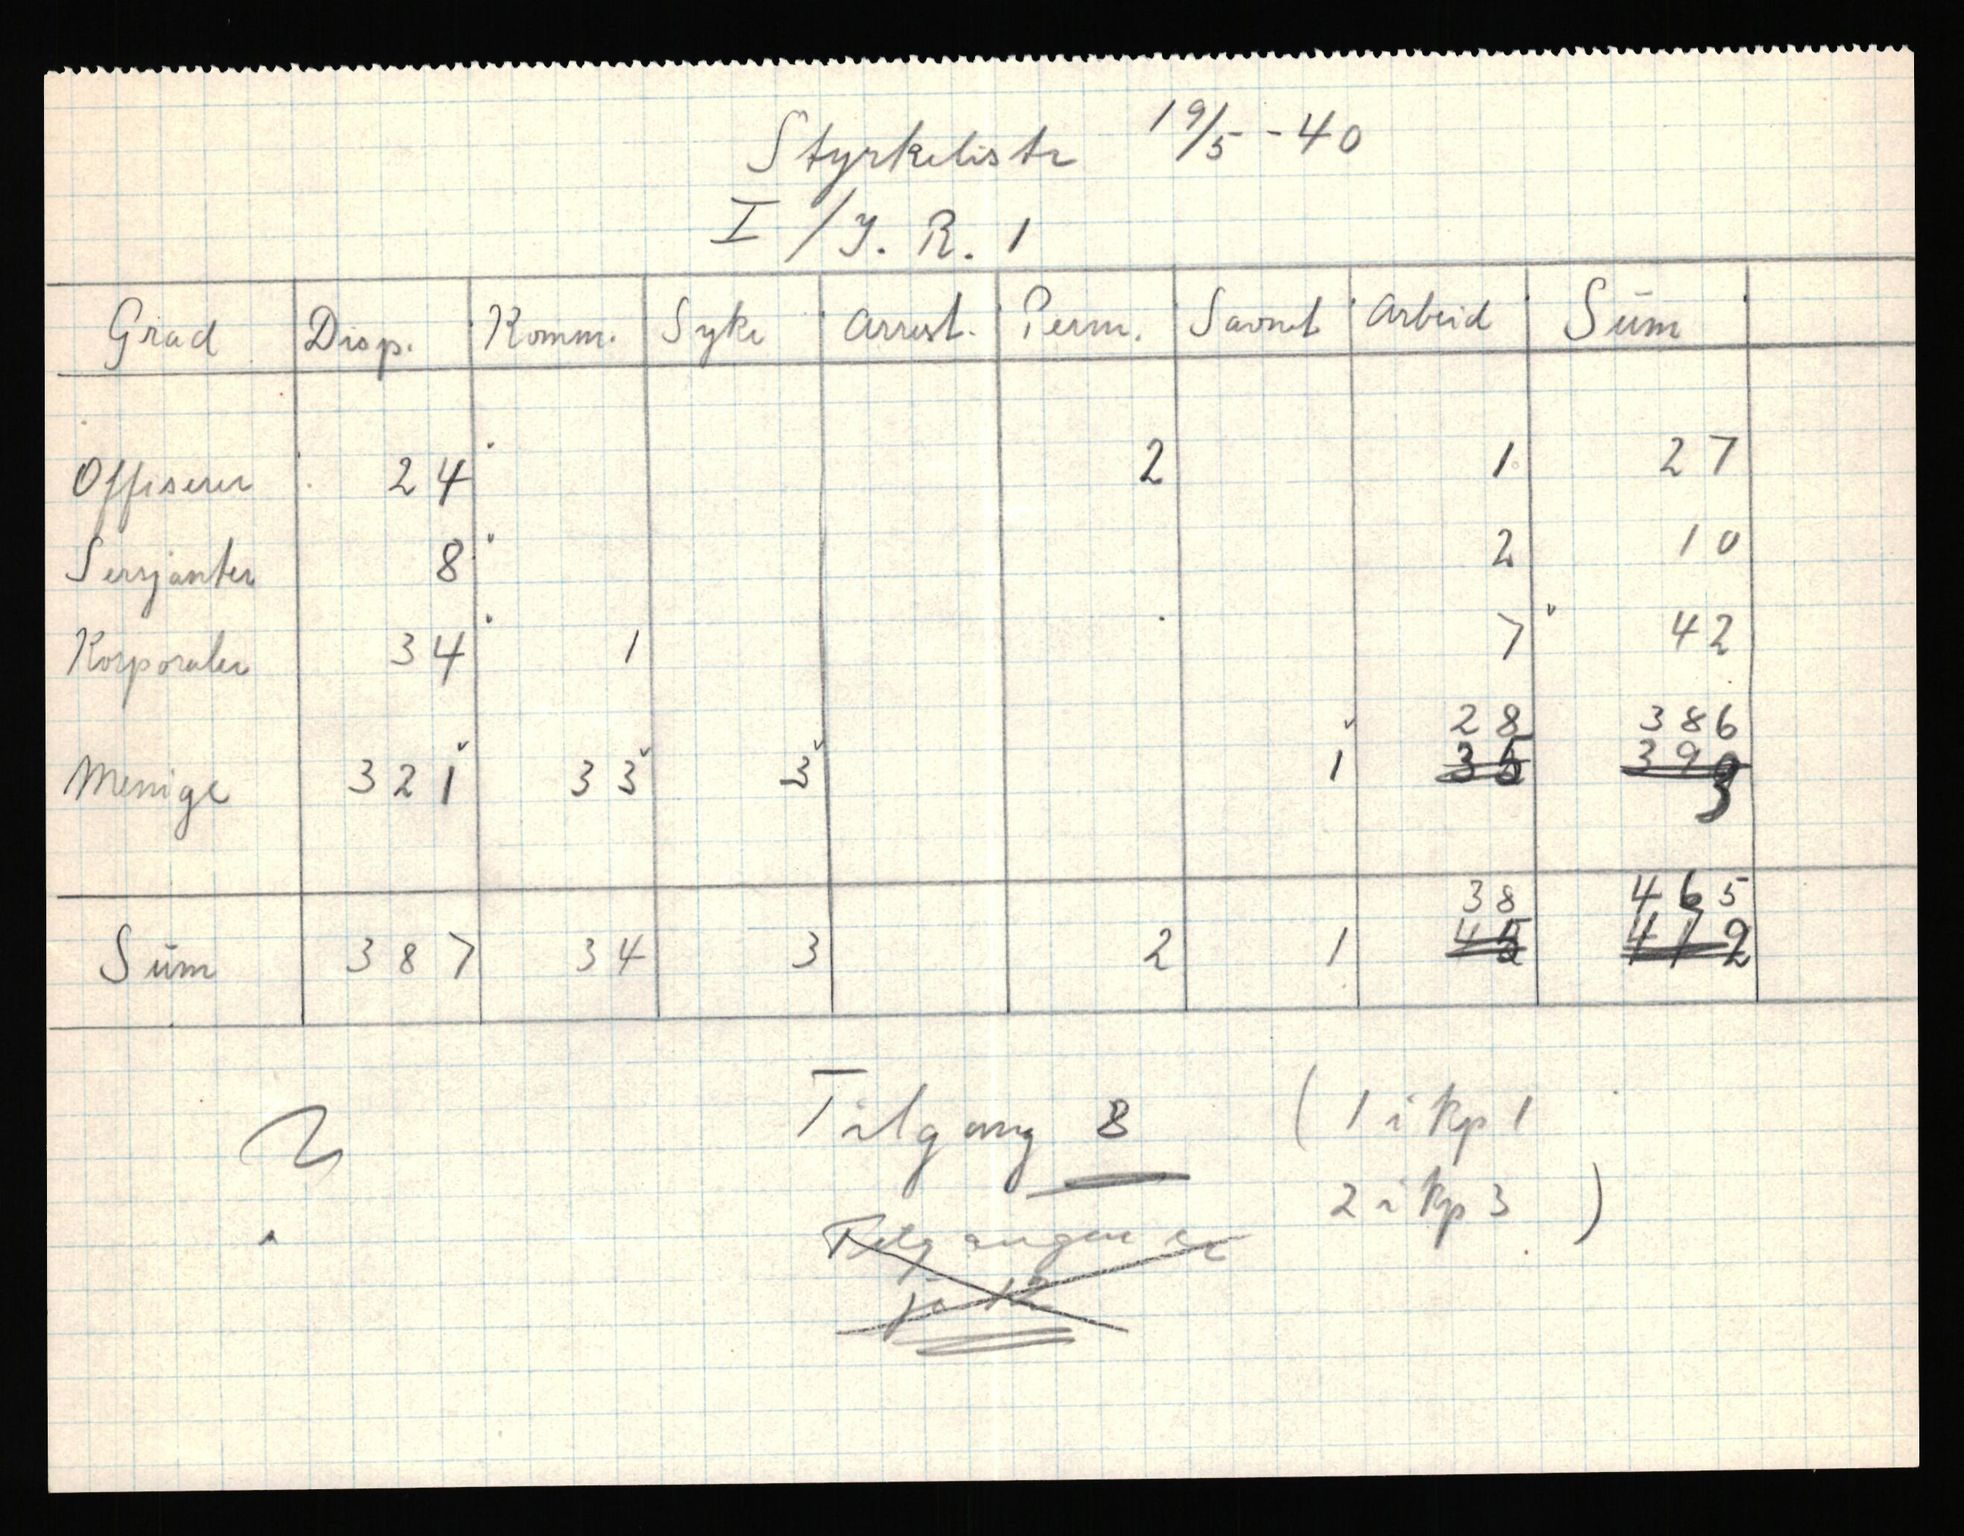 Styrkeliste 19/5 - 40
I / J. R. 1
Grad Disp. Komm. Syke Arrest. Perm. Savnet Arbeid Sum
Offiserer 24 2 1 27
Sersjanter 8 2 10
Korporaler 34 1 7 42
28 386
Menige 321 33 3 1 35 393
38 465
Sum 387 34 3 2 1 45 472
Tilgang 8 (1 i kp 1
2 i kp 3)
Tilgangen er
jo 12